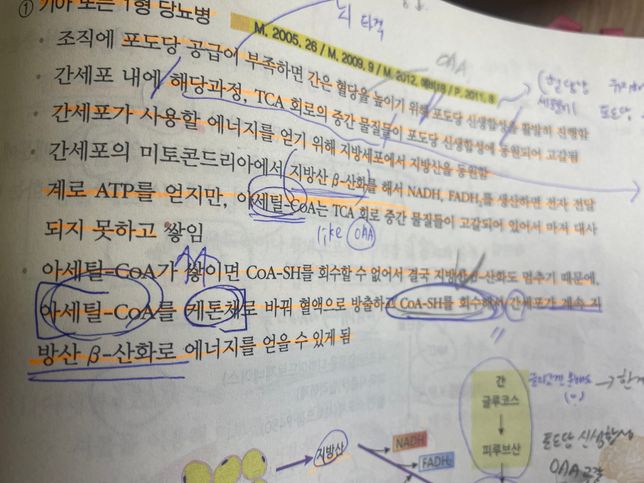 ① 기아 또는 1형 당뇨병
뇌 타격
M. 2005, 26 / M. 2009, 9 / M. 2012, 예비 18 / P. 2011, 8
OAA
· 조직에 포도당 공급이 부족하면 간은 혈당을 높이기 위해 포도당 신생합성을 활발히 진행함
· 간세포 내에 해당과정, TCA 회로의 중간 물질들이 포도당 신생합성에 동원되어 고갈됨
· 간세포가 사용할 에너지를 얻기 위해 지방세포에서 지방산을 동원함
· 간세포의 미토콘드리아에서 지방산 β-산화를 해서 NADH, FADH₂를 생산하면 전자 전달
계로 ATP를 얻지만, 아세틸-CoA는 TCA 회로 중간 물질들이 고갈되어 있어서 마저 대사
되지 못하고 쌓임
like OAA
· 아세틸-CoA가 쌓이면 CoA-SH를 회수할 수 없어서 결국 지방산 β-산화도 멈추기 때문에,
아세틸-CoA를 케톤체로 바꿔 혈액으로 방출하고 CoA-SH를 회수해서 간세포가 계속 지
방산 β-산화로 에너지를 얻을 수 있게 됨
간
글루코스
피루브산
포도당 신생합성
OAA 고갈
지방산
NADH
FADH₂